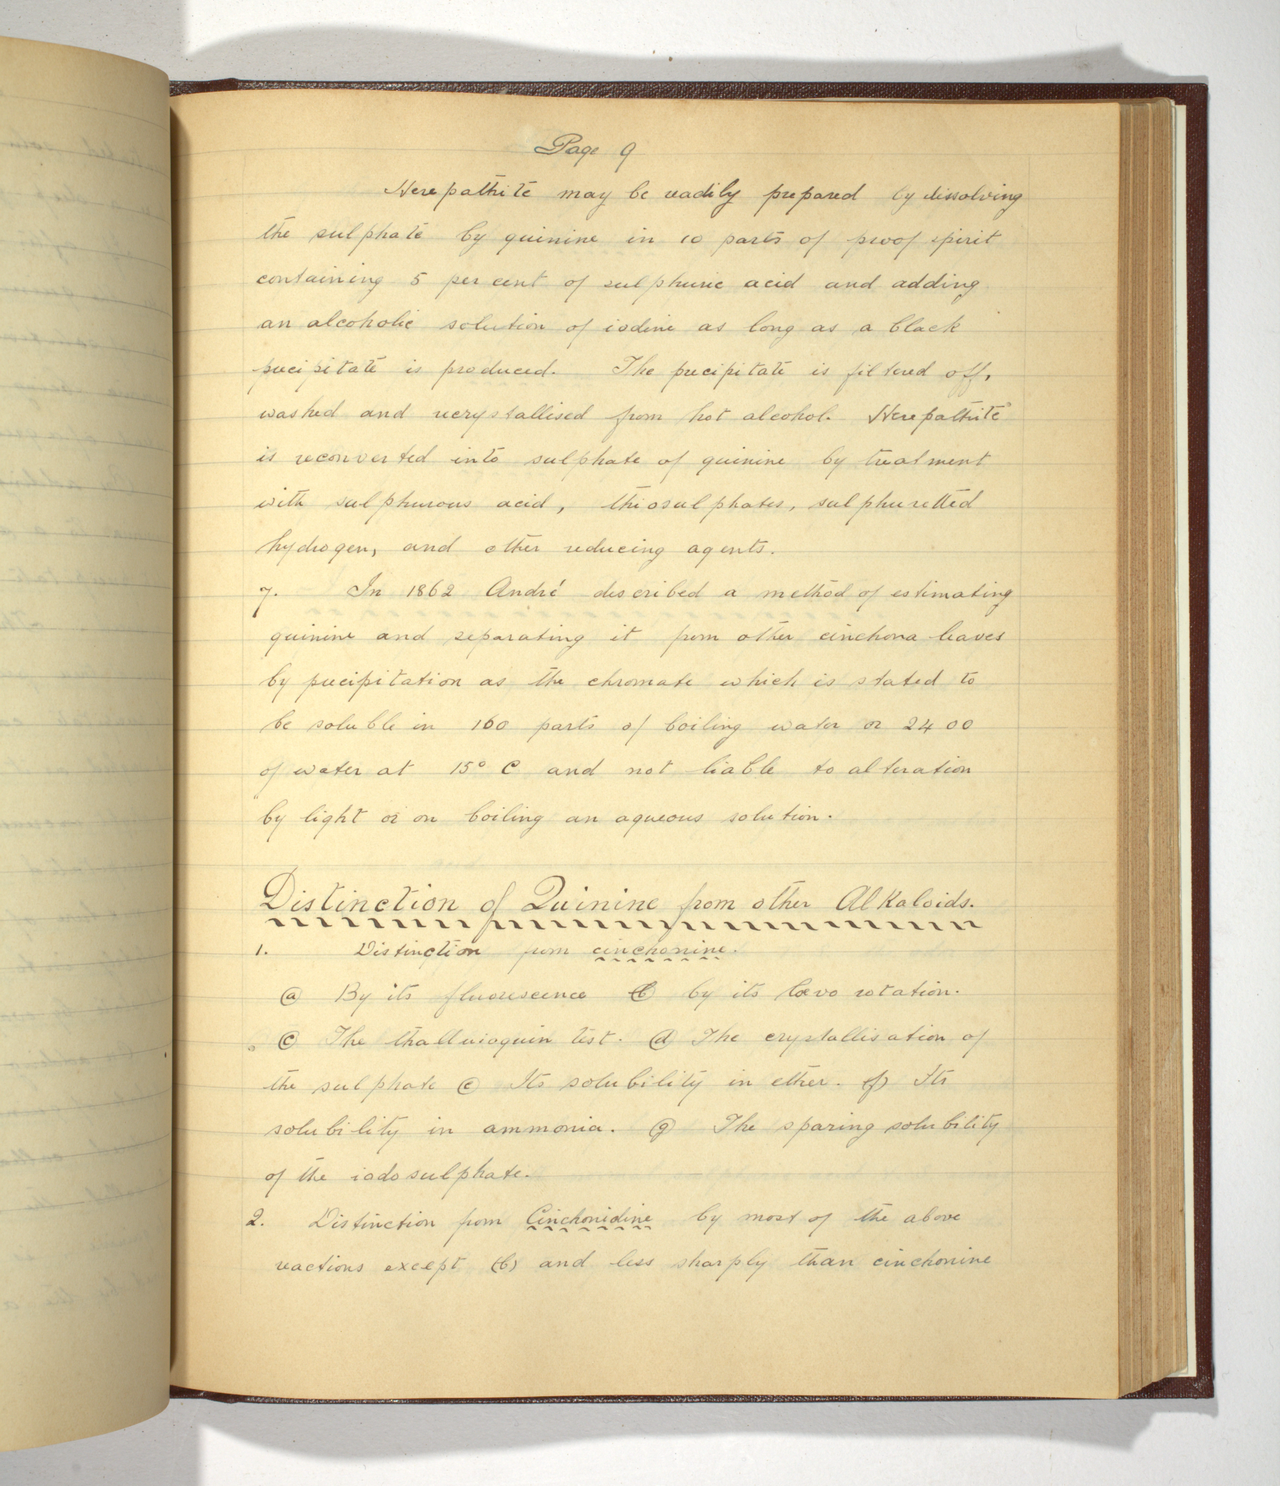 Page 9
Herepathite may be readily prepared by dissolving
the sulphate by quinine in 10 parts of proof spirit
containing 5 per cent of sulphuric acid and adding
an alcoholic solution of iodine as long as a black
precipitate is produced. The precipitate is filtered off,
washed and recrystallised from hot alcohol. Herepathite
is reconverted into sulphate of quinine by treatment
with sulphurous acid, thiosulphates, sulphuretted
hydrogen, and other reducing agents.
7. In 1862 André described a method of estimating
quinine and separating it from other cinchona leaves
by precipitation as the chromate which is stated to
be soluble in 160 parts of boiling water or 2400
of water at 15° C and not liable to alteration
by light or on boiling an aqueous solution.
Distinction of Quinine from other Alkaloids.
1. Distinction from cinchonine.
(a) By its fluorescence (b) by its lævo rotation.
(c) The thalleioquin test. (d) The crystallisation of
the sulphate (e) Its solubility in ether. (f) Its
solubility in ammonia. (g) The sparing solubility
of the iodosulphate.
2. Distinction from Cinchonidine by most of the above
reactions except (b) and less sharply than cinchonine